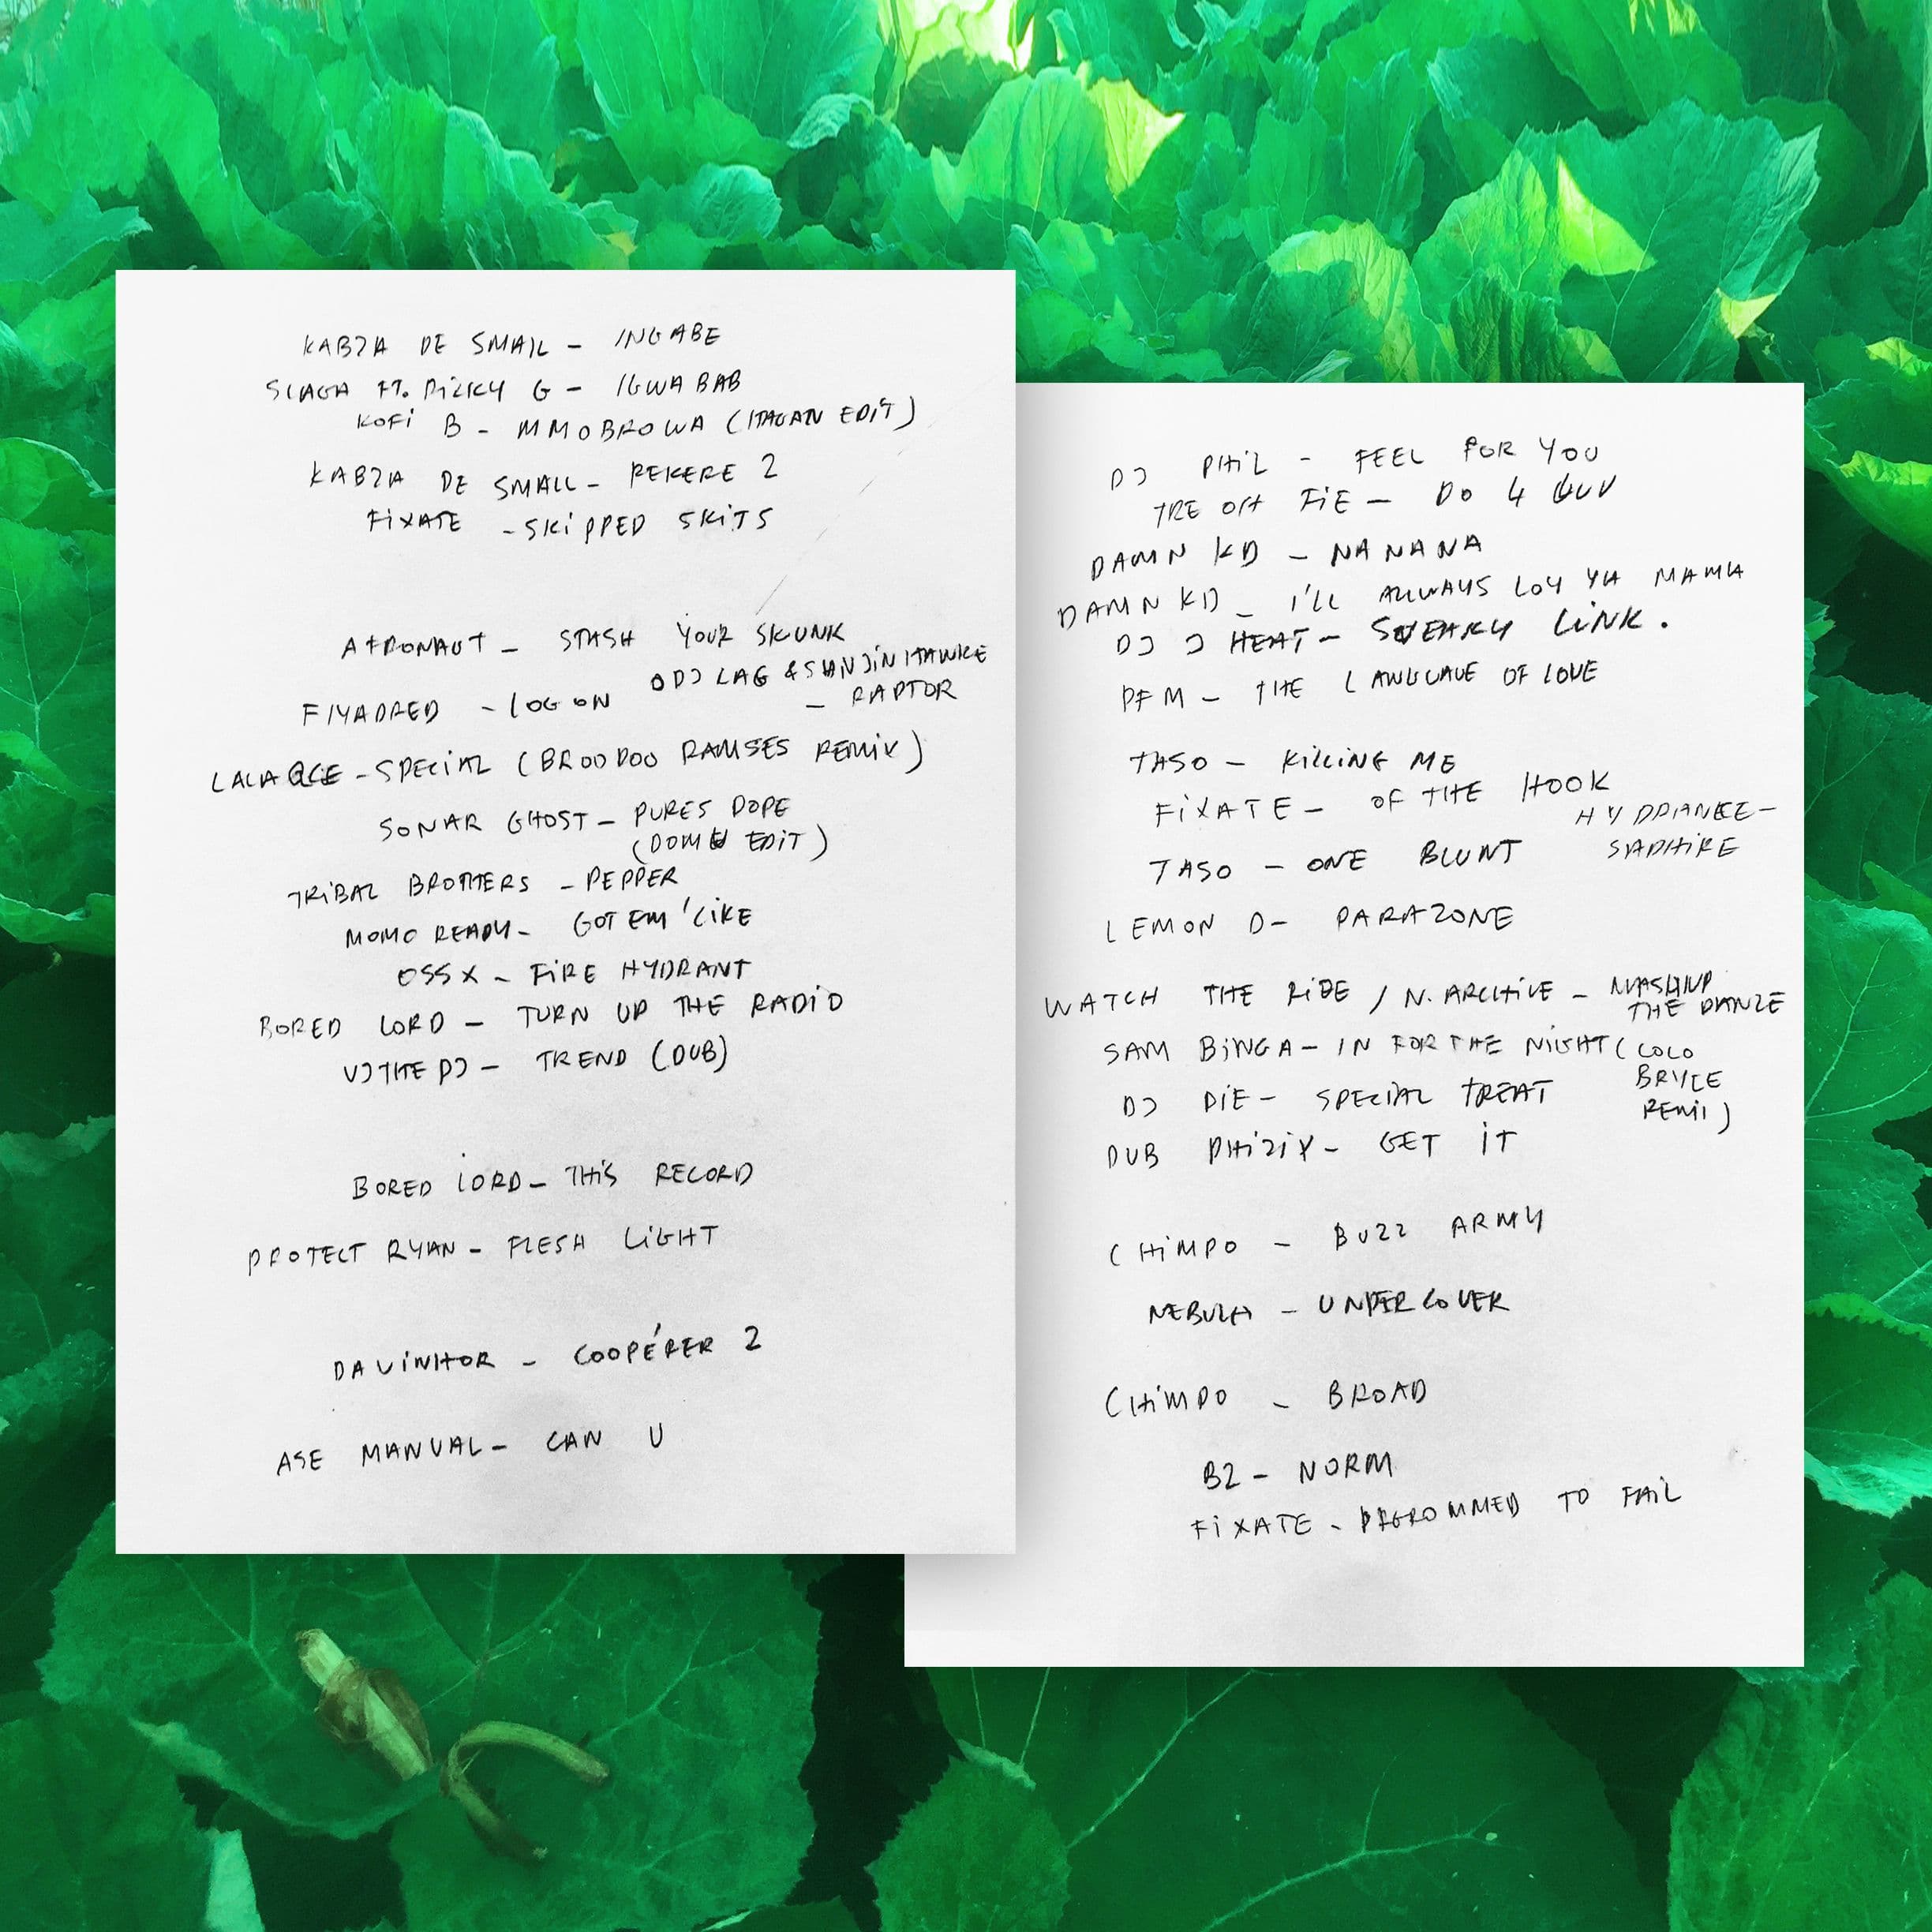 KABZA DE SMALL - INGABE
SLAGA FT. PILLKY G - IGWABAB
KOFI B - MMOBROWA (ITAGAN EDIT)
KABZA DE SMALL - REKERE 2
FIXATE - SKIPPED SKITS
ATRONAUT - STASH YOUR SKUNK
FIYADRED - LOG ON
O DJ LAG & SINJIN HAWKE
- RAPTOR
LALA &CE - SPECIAL (BROODOO RAMSES REMIX)
SONAR GHOST - PURES DOPE
(DOMU EDIT)
TRIBAL BROTHERS - PEPPER
MOMO READY - GOT EM' LIKE
OSSX - FIRE HYDRANT
BORED LORD - TURN UP THE RADIO
VJTHEDJ - TREND (DUB)
BORED LORD - THIS RECORD
PROTECT RYAN - FLESH LIGHT
DAVINHOR - COOPÉRER 2
ASE MANUAL - CAN U
DJ PHIL - FEEL FOR YOU
TRE OH FIE - DO 4 LUV
DAMN KD - NA NA NA
DAMN KD - I'LL ALLWAYS LOV YA MAMA
DJ J HEAT - SNEAKY LINK.
PFM - THE LANGUAGE OF LOVE
TASO - KILLING ME
FIXATE - OF THE HOOK
HYDRANGEE -
SAPHIRE
TASO - ONE BLUNT
LEMON D - PARAZONE
WATCH THE RIDE / N. ARCHIVE - MASHUP
THE DANZE
SAM BINGA - IN FOR THE NIGHT (COLO
BRYCE
REMI)
DJ DIE - SPECIAL TREAT
DUB PHIZIX - GET IT
CHIMPO - BUZZ ARMY
NEBULA - UNDERCOVER
CHIMPO - BROAD
B2 - NORM
FIXATE - PRGROMMED TO FAIL